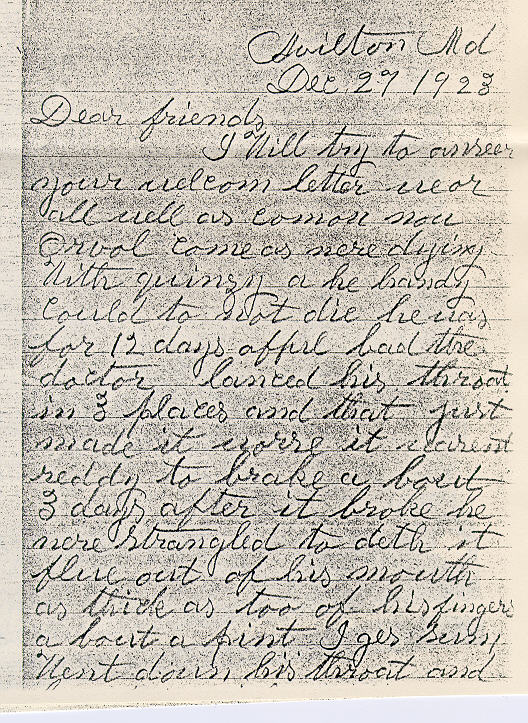 Md
Dec 27 1923
Dear friends
I Will try to anseer
your uelcom letter ueor
all uell as comon nou
Orvol come as nere dying
With quinzy a he handy
Could to not die he uas
for 12 days offul bad the
doctor lanced his throat
in 3 places and that just
made it uorse it uarent
reddy to brake a bout
3 days after it broke he
nere strangled to deth it
flue out of his mouth
as thick as too of his fingers
a bout a pint I ges sum
Went doun his throat and